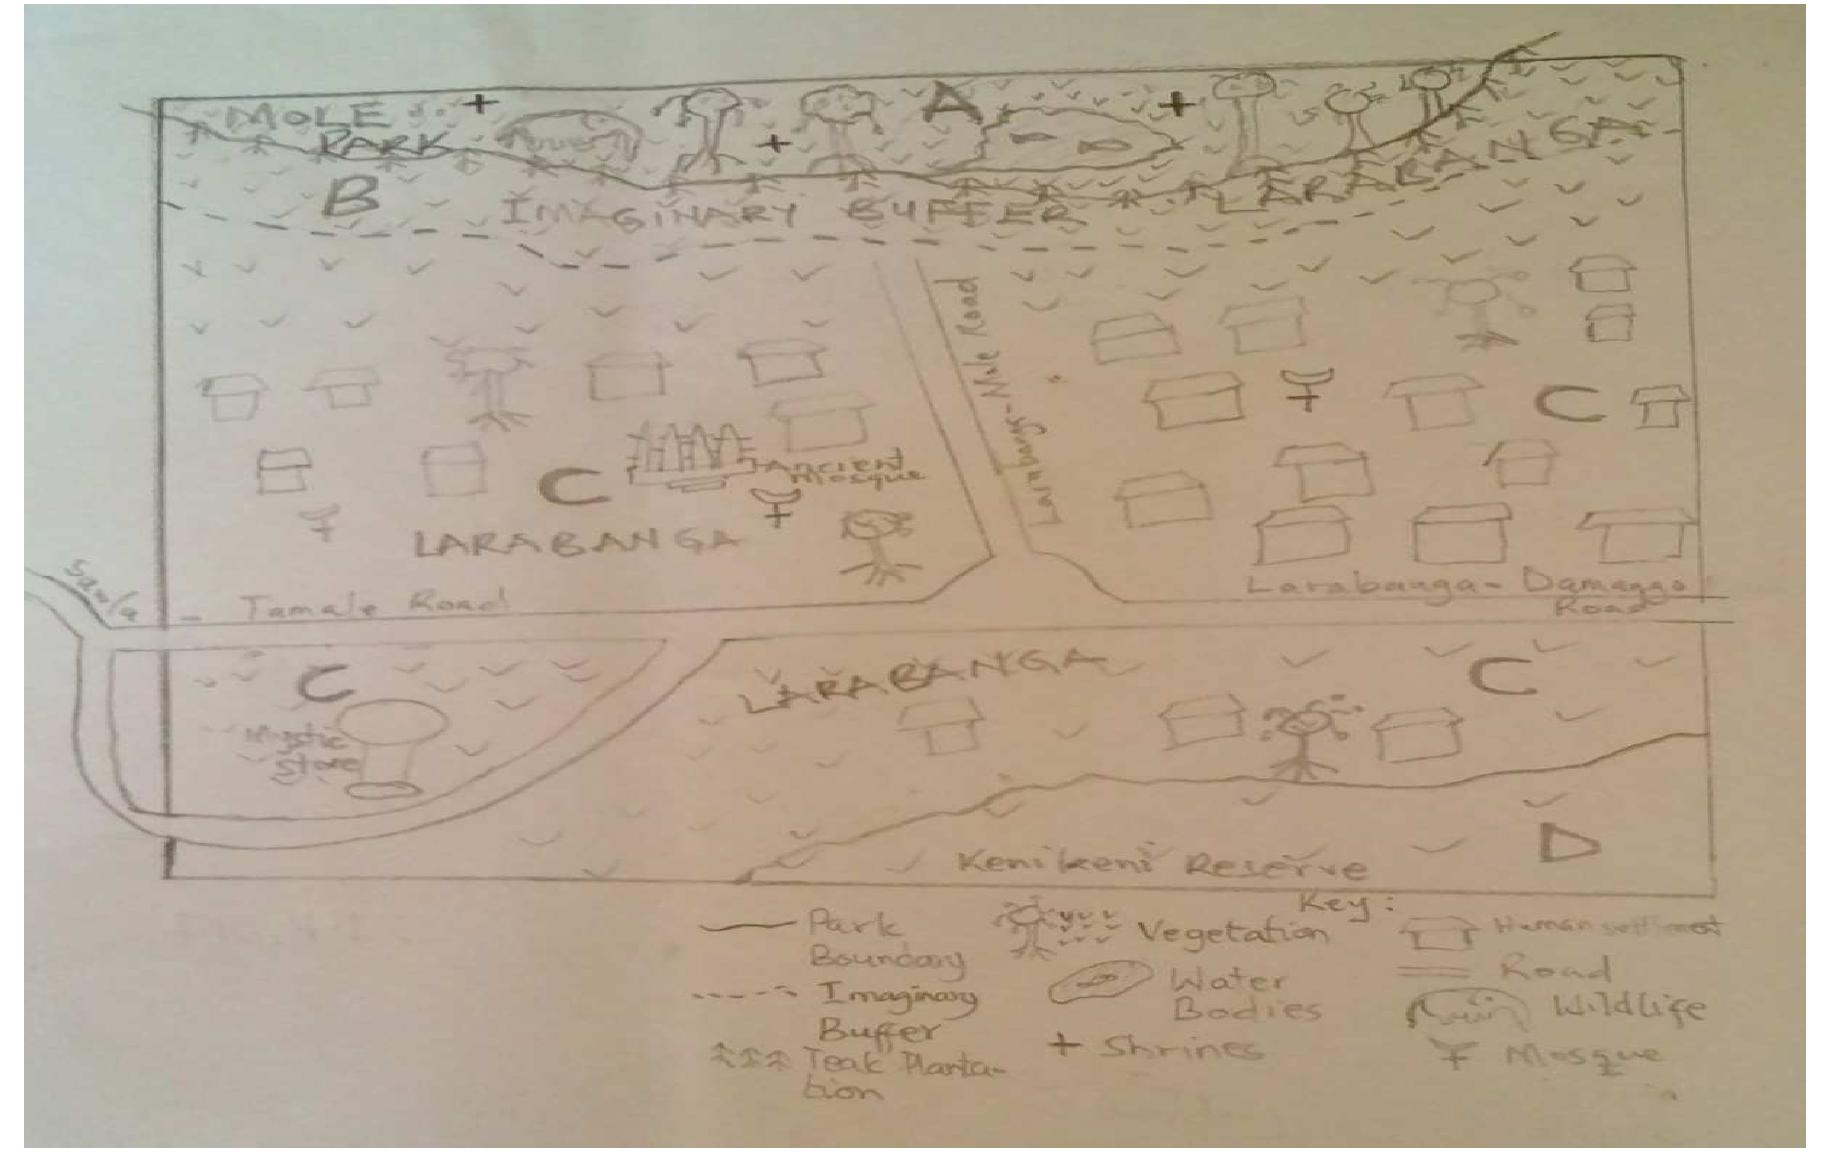 MOLE
PARK
A
B
IMAGINARY BUFFER
LARABANGA
Larabanga-Mole Road
C
C
Ancient
Mosque
LARABANGA
Sawla - Tamale Road
Larabanga - Damango
Road
C
Mystic
Stone
LARABANGA
C
Kenikeni Reserve
D
Key:
Park
Boundary
Imaginary
Buffer
Teak Planta-
tion
Vegetation
Water
Bodies
+ Shrines
Human settlment
Road
Wildlife
Mosque